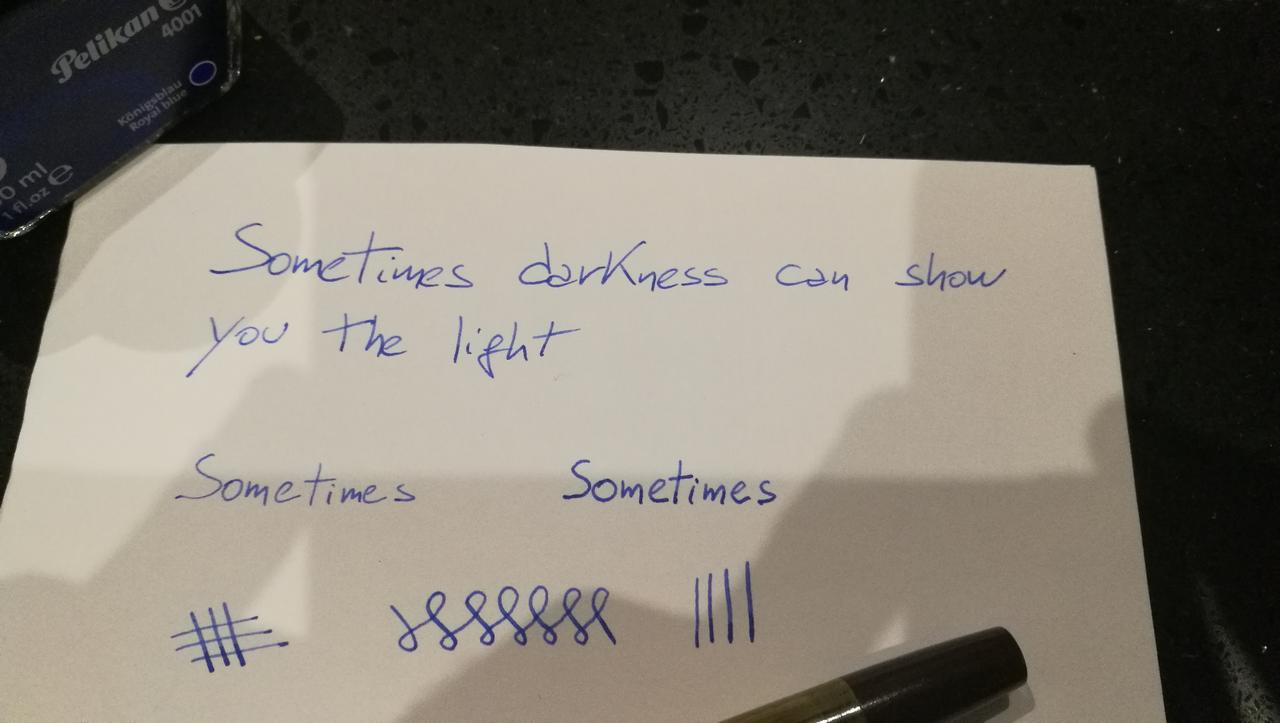 Pelikan
4001
Königsblau
Royal blue
0 ml e
1 fl.oz
Sometimes darkness can show
you the light
Sometimes Sometimes